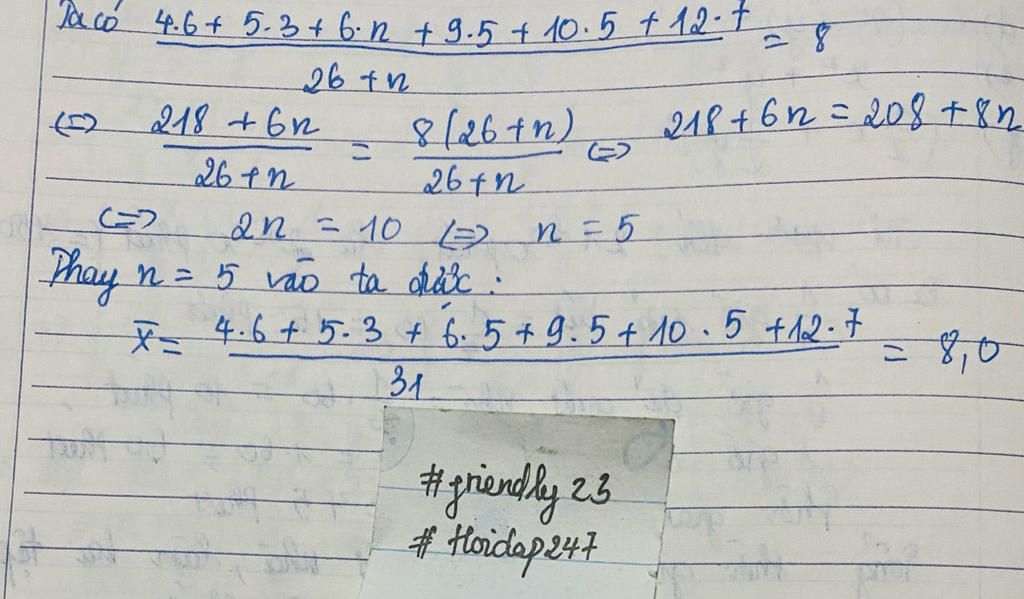 Ta có 4.6 + 5.3 + 6.n + 9.5 + 10.5 + 12.7 / 26 + n = 8
<=> 218 + 6n / 26 + n = 8(26 + n) / 26 + n <=> 218 + 6n = 208 + 8n
<=> 2n = 10 <=> n = 5
Thay n = 5 vào ta được :
x̄ = 4.6 + 5.3 + 6.5 + 9.5 + 10.5 + 12.7 / 31 = 8,0
#friendly 23
# Hoidap247